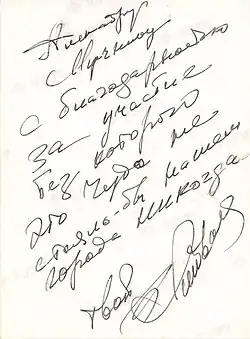 Александру
с благодарностью
за участие
без которого
это чудо не
стояло-бы в нашем
городе никогда.
твой